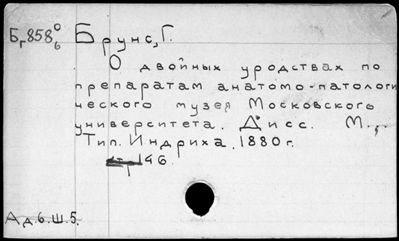 Бг858 0/6 Брунс, Г.
О двойных уродствах по
препаратам анатомо-патологи
ческого музея Московского
университета. Дисс. М.,
Тип. Индриха. 1880г.
146.
Ад.6.Ш.5.